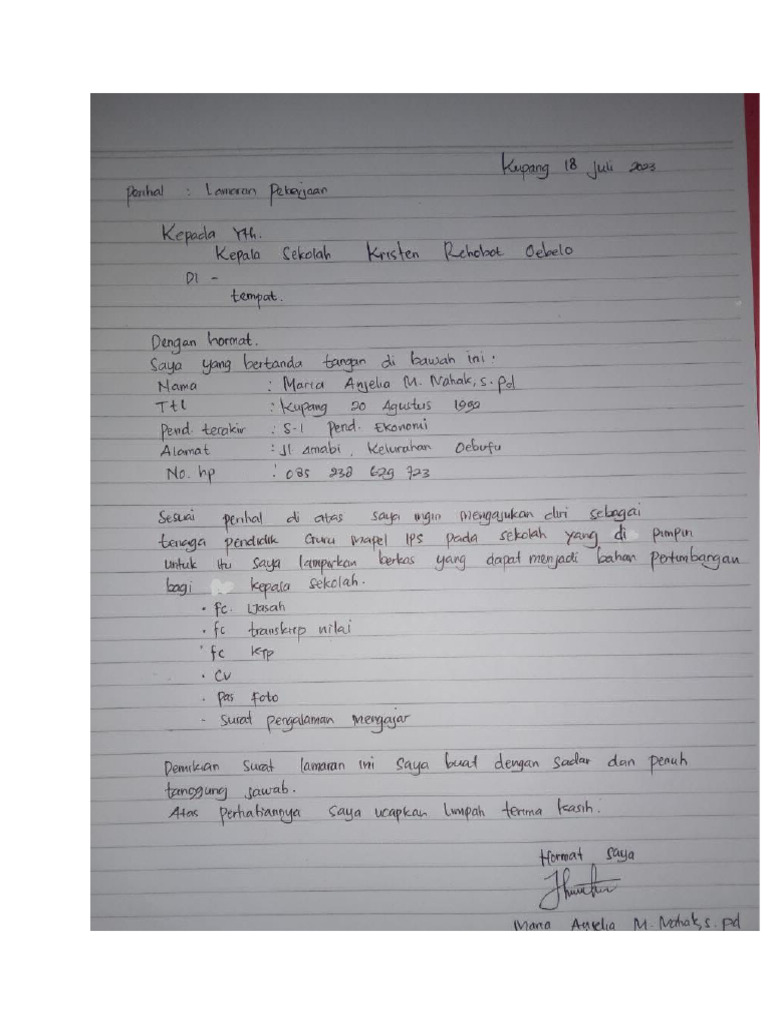 Kupang 18 Juli 2023
Perihal : Lamaran Pekerjaan
Kepada Yth.
Kepala Sekolah Kristen Rehobot Oebelo
DI -
tempat.
Dengan hormat.
Saya yang bertanda tangan di bawah ini.
Nama : Maria Anjelia M. Nahak, S. Pd
Ttl : Kupang 20 Agustus 1992
Pend. terakir : S-1 Pend. Ekonomi
Alamat : Jl Amabi, Kelurahan Oebufu
No. hp : 085 238 629 723
Sesuai perihal di atas saya ingin mengajukan diri sebagai
tenaga pendidik Guru Mapel IPS pada sekolah yang di pimpin
untuk itu saya lampirkan berkas yang dapat menjadi bahan pertimbangan
bagi kepala sekolah.
• fc. Ijasah
• fc transkrip nilai
• fc KTP
• CV
• pas foto
- surat pengalaman mengajar
Demikian surat lamaran ini saya buat dengan sadar dan penuh
tanggung jawab.
Atas perhatiannya saya ucapkan limpah terima kasih.
Hormat saya
Maria Anjelia M. Nahak, S. Pd